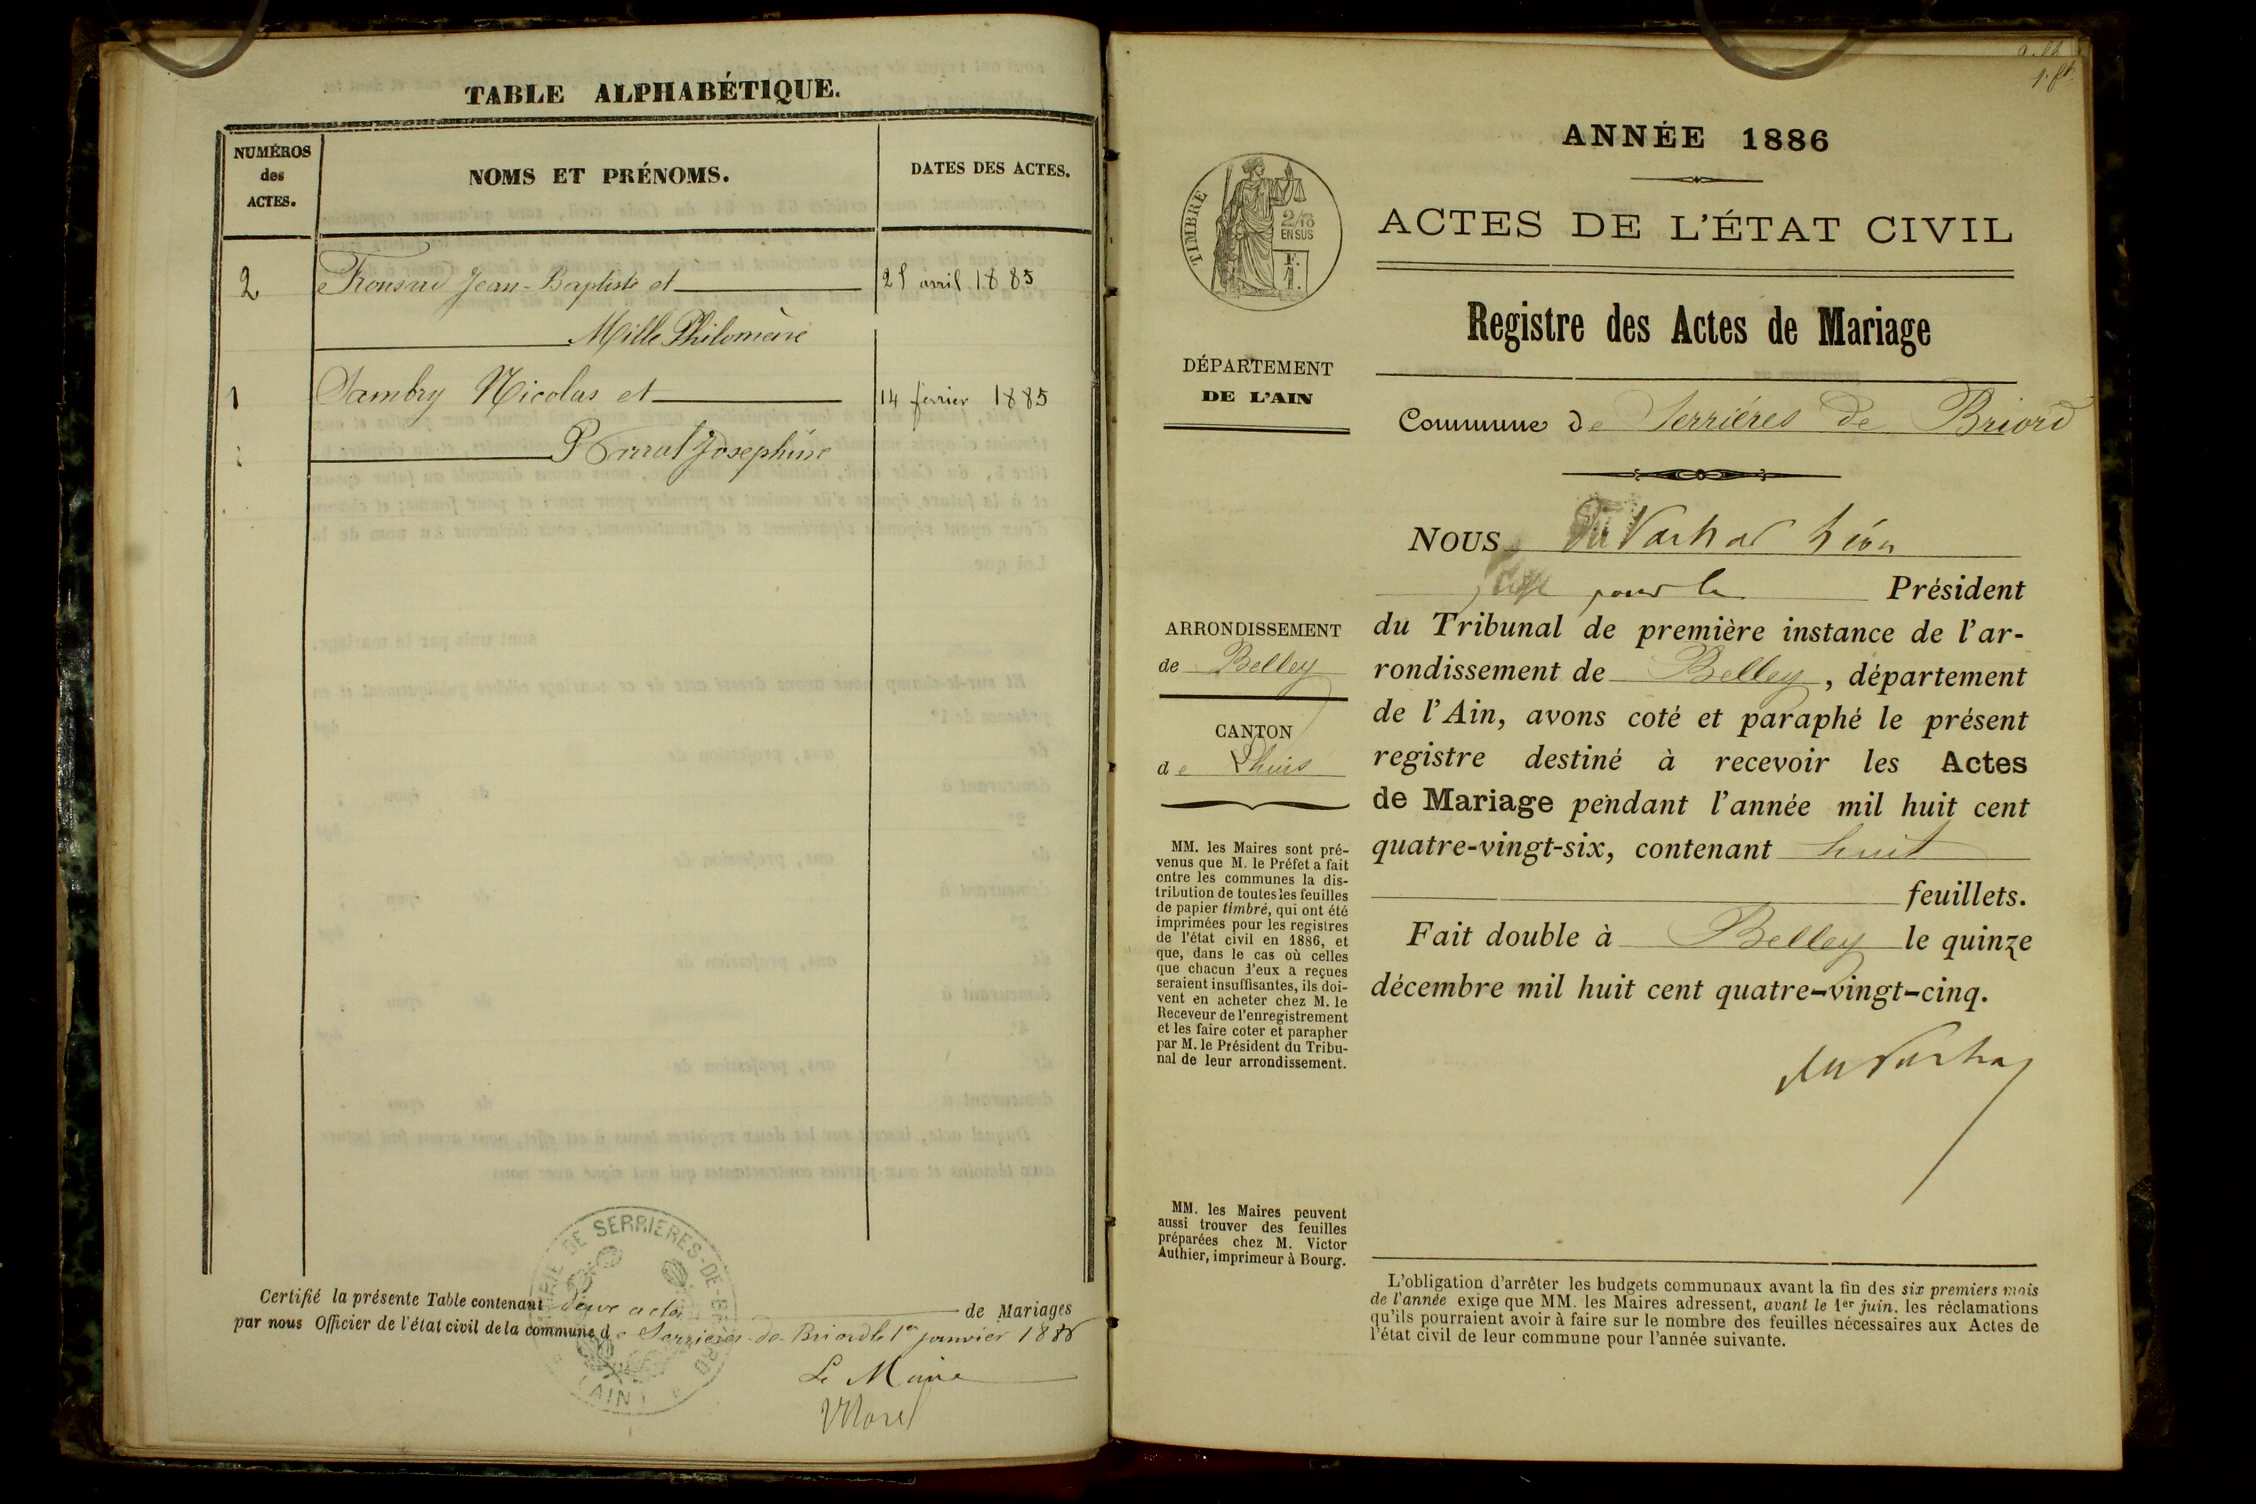 TABLE ALPHABÉTIQUE.
NUMÉROS
des
ACTES.
NOMS ET PRÉNOMS.
DATES DES ACTES.
2 Jean-Baptiste et 25 avril 1885
Mille Philomène
1 Sambry Nicolas et 14 février 1885
Josephine
MAIRIE DE SERRIERES-DE-BRIORD
(AIN)
Certifié la présente Table contenant deux actes de Mariages
par nous Officier de l'état civil de la commune de Serrières-de-Briord le 1er janvier 1886
Le Maire
Morel
1. ft
ANNÉE 1886
TIMBRE
2/10
EN SUS
F.
1.
ACTES DE L'ÉTAT CIVIL
Registre des Actes de Mariage
DÉPARTEMENT
DE L'AIN
Commune de Serriéres de Briord
NOUS Léon
Juge pour le Président
du Tribunal de première instance de l'ar-
rondissement de Belley, département
de l'Ain, avons coté et paraphé le présent
registre destiné à recevoir les Actes
de Mariage pendant l'année mil huit cent
quatre-vingt-six, contenant huit
feuillets.
Fait double à Belley le quinze
décembre mil huit cent quatre-vingt-cinq.
ARRONDISSEMENT
de Belley
CANTON
de Lhuis
MM. les Maires sont pré-
venus que M. le Préfet a fait
entre les communes la dis-
tribution de toutes les feuilles
de papier timbré, qui ont été
imprimées pour les registres
de l'état civil en 1886, et
que, dans le cas où celles
que chacun d'eux a reçues
seraient insuffisantes, ils doi-
vent en acheter chez M. le
Receveur de l'enregistrement
et les faire coter et parapher
par M. le Président du Tribu-
nal de leur arrondissement.
MM. les Maires peuvent
aussi trouver des feuilles
préparées chez M. Victor
Authier, imprimeur à Bourg.
L'obligation d'arrêter les budgets communaux avant la fin des six premiers mois
de l'année exige que MM. les Maires adressent, avant le 1er juin, les réclamations
qu'ils pourraient avoir à faire sur le nombre des feuilles nécessaires aux Actes de
l'état civil de leur commune pour l'année suivante.